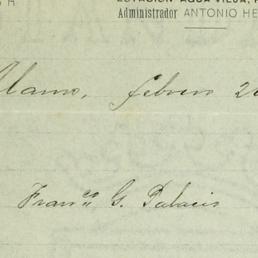 ESTACION AGUA VIEJA,
Administrador ANTONIO HE
Alamo, febrero 2
Franco G. Palacio